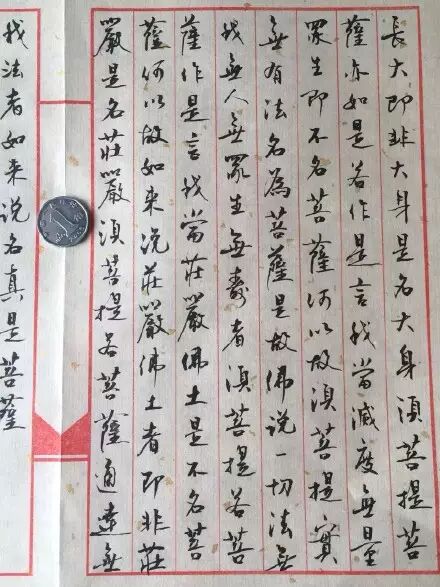 長大即非大身是名大身須菩提菩
薩亦如是若作是言我當滅度無量
眾生即不名菩薩何以故須菩提實
無有法名為菩薩是故佛說一切法無
我無人無眾生無壽者須菩提若菩
薩作是言我當莊嚴佛土是不名菩
薩何以故如来說莊嚴佛土者即非莊
嚴是名莊嚴須菩提若菩薩通達無
我法者如来說名真是菩薩
1